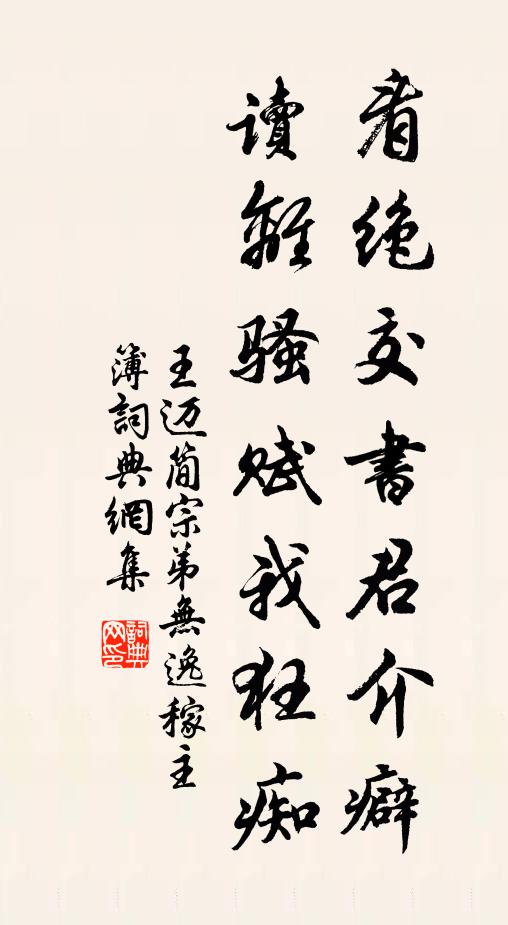 看绝交書君介癖
讀離騷赋我狂痴
王迈简宗弟無逸稼主
簿詞典網集
詞典
网印